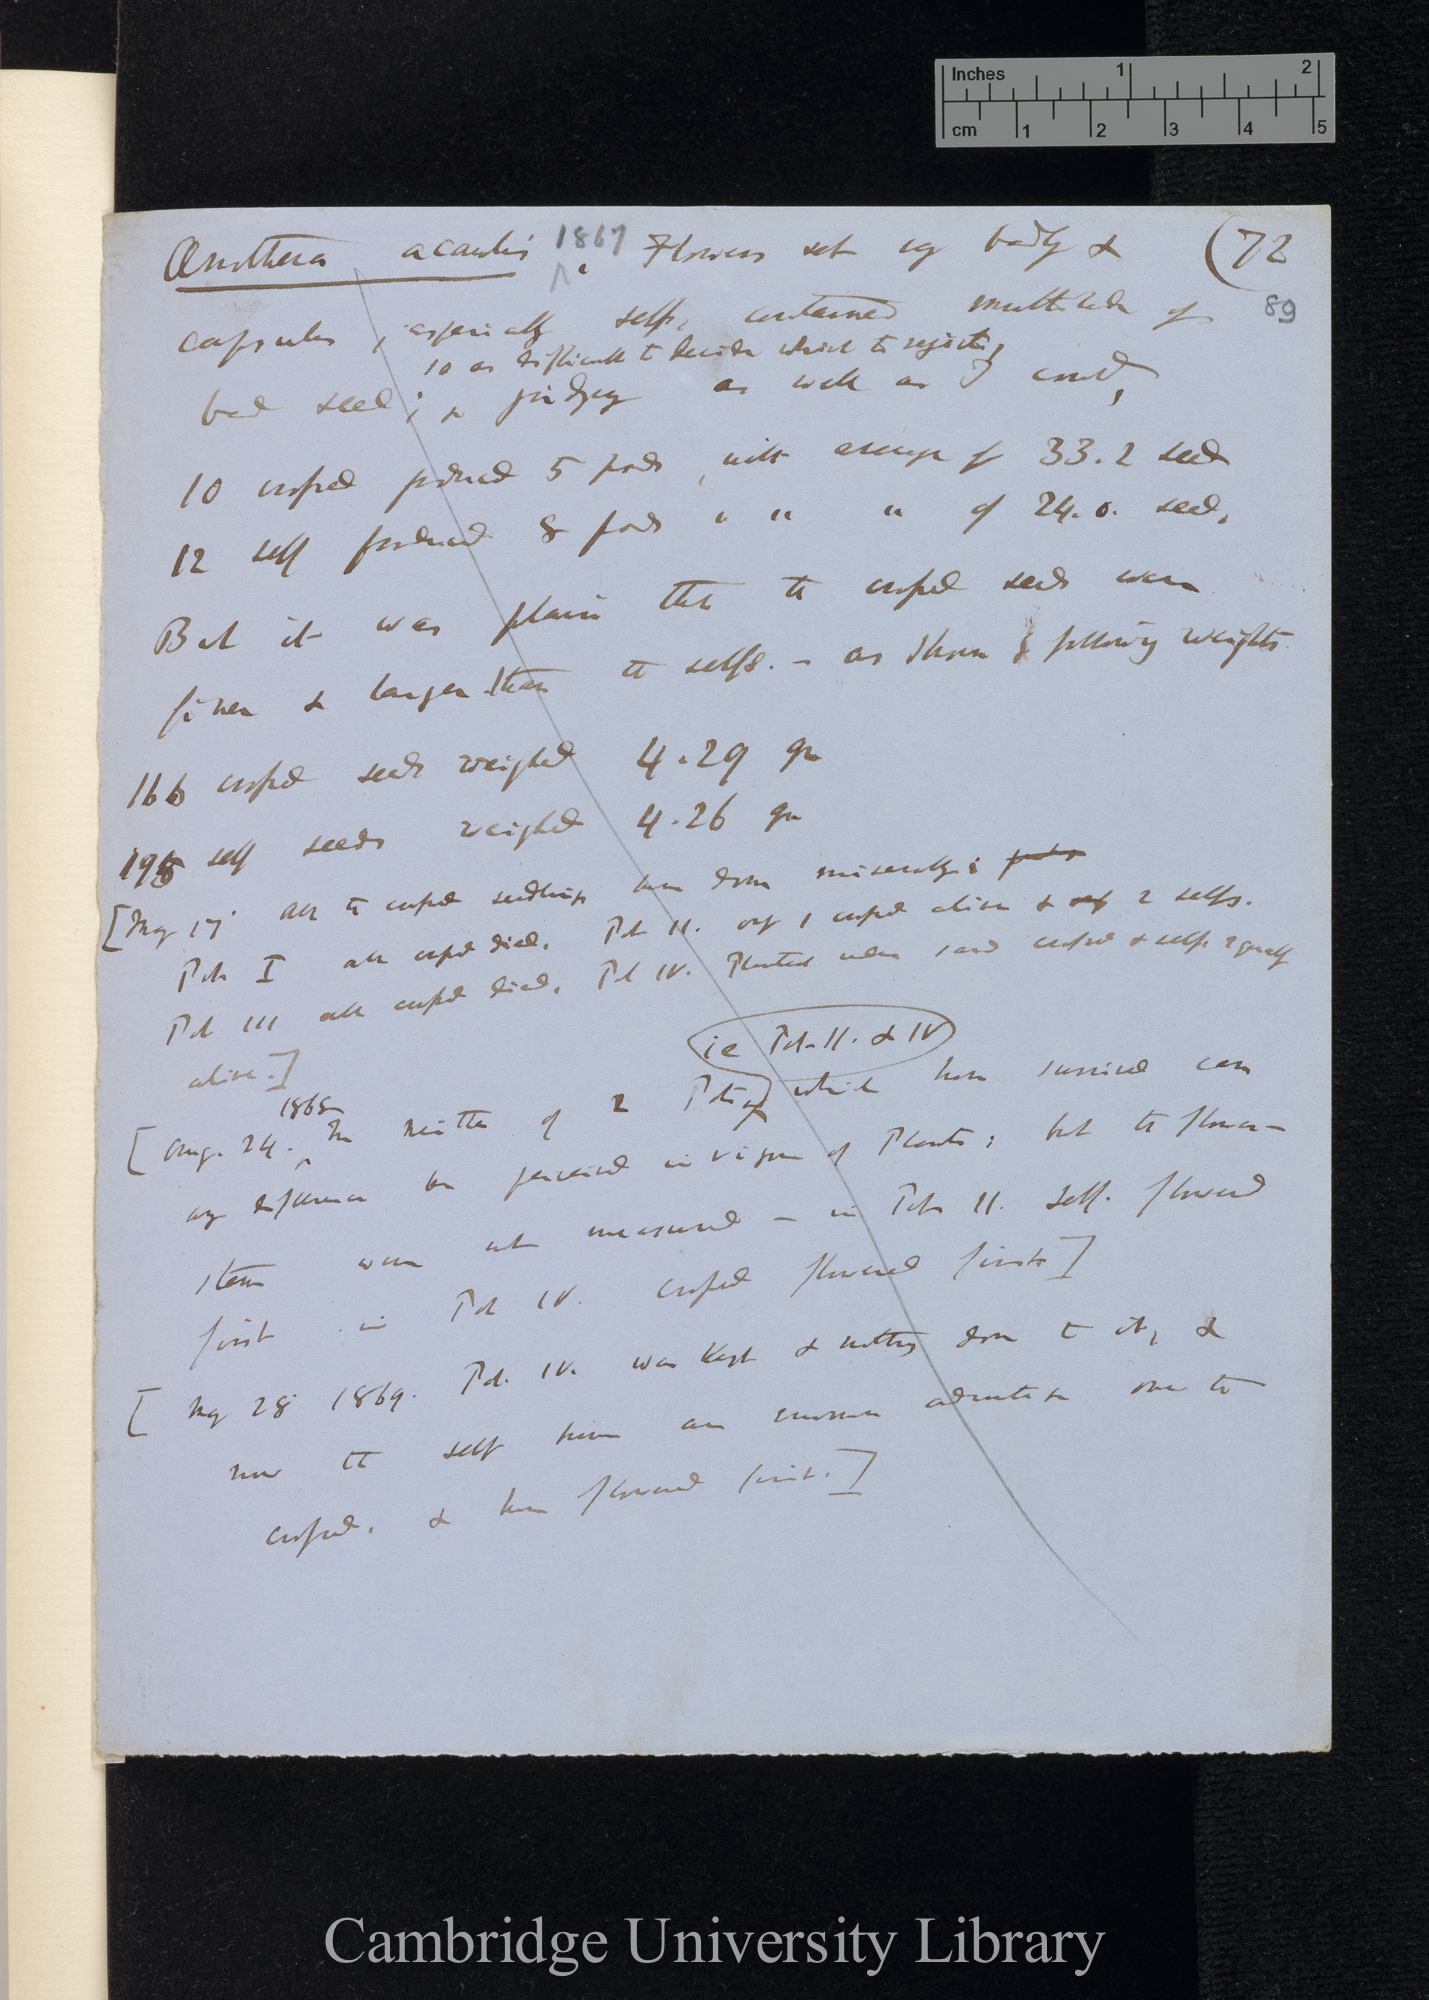 Inches 1 2
cm 1 2 3 4 5
Œnothera acaulis 1867 Flowers set very badly & (72
89
capsules, especially selfs, contained multitude of
so as difficult to decide which to reject,
bad seed; judging as well as I could,
10 crossed produced 5 pods, with average of 33.2 seed
12 self produced 8 pods " " " of 24.0. seed.
But it was plain that the crossed seeds were
finer & larger than the selfs. – as shown by following weights
166 crossed seeds weighed 4.29 gr
195 self seeds weighed 4.26 gr
[May 17' All the crossed seedlings have done miserably; pots
Pots I all crossed died. Pot II. only 1 crossed alive & 2 selfs.
Pot III all crossed died. Pot IV. Planted when seed crossed & selfs equally
alive.]
ie Pots II. & IV
1868
[Aug. 24. In neither of 2 Pots, which have survived can
any difference be perceived in vigour of Plants; but the flower-
stems were not measured – in Pots II. Self. flowered
first in Pot IV. crossed flowered first]
[May 28 1869. Pot. IV. was kept & nothing done to it, &
now the self have an enormous advantage over the
crossed, & have flowered first.]
Cambridge University Library